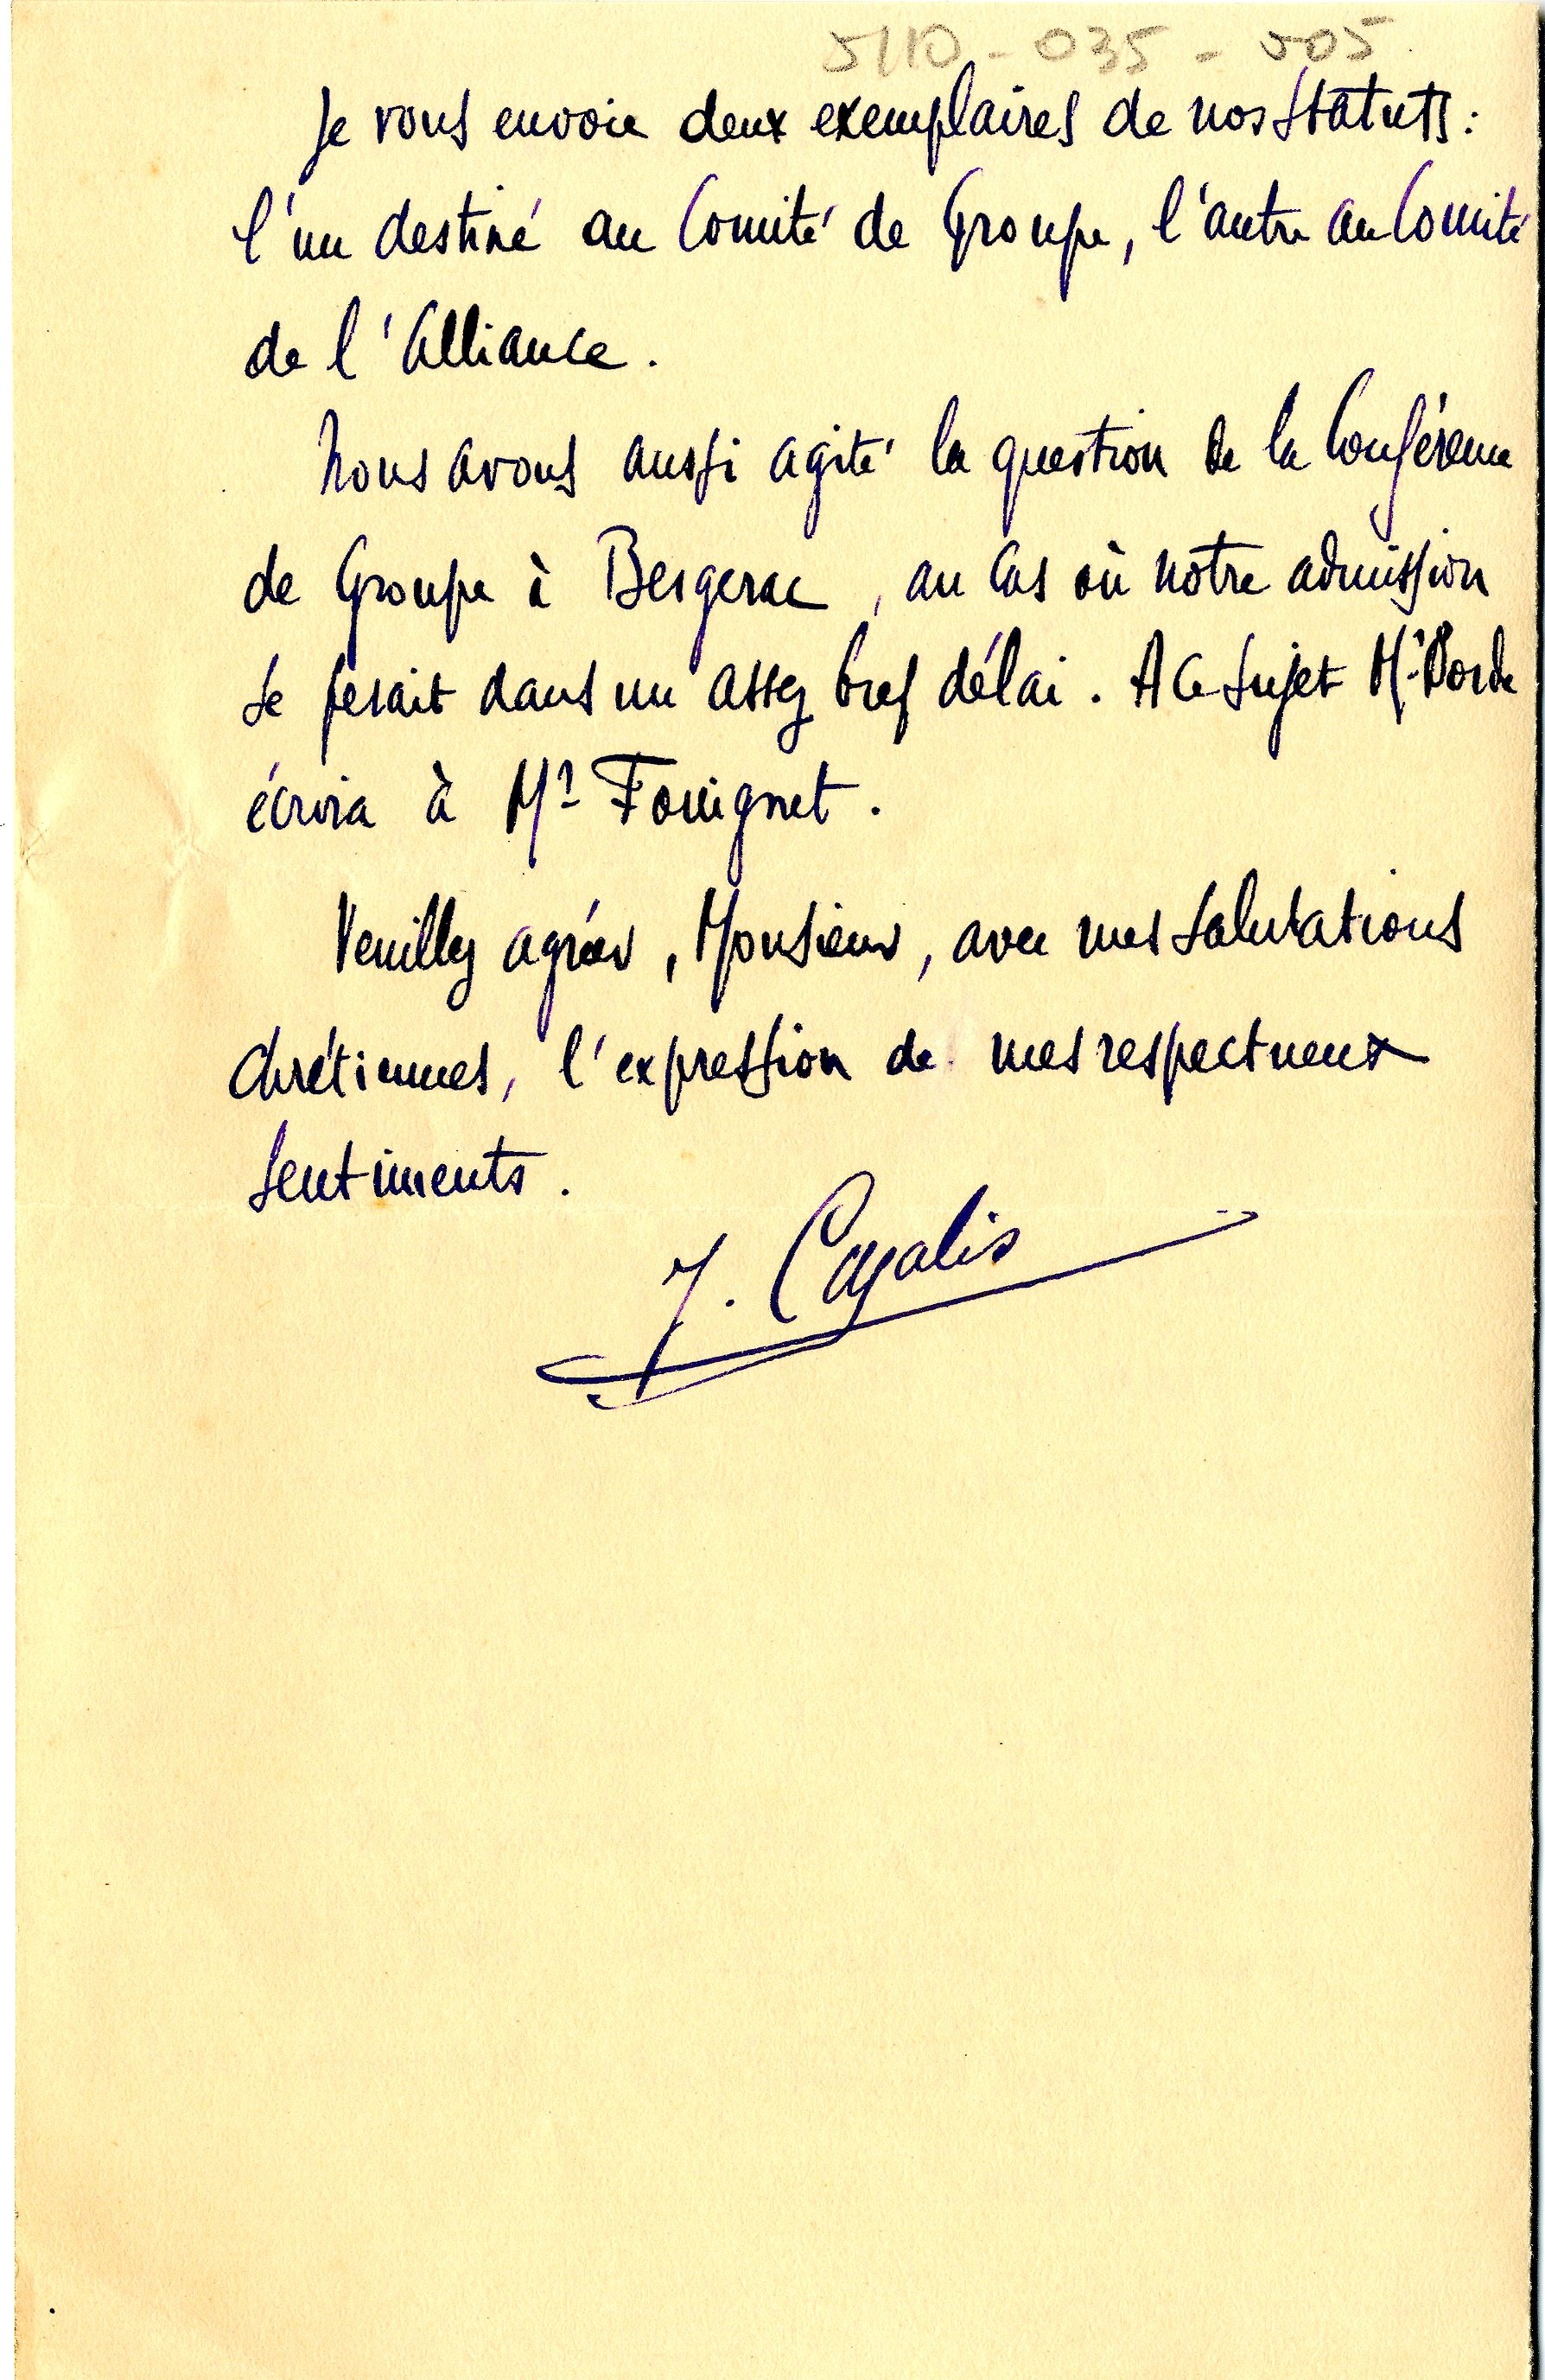 5110-035-505
Je vous envoie deux exemplaires de nos Statuts :
l'un destiné au Comité de Groupe, l'autre au Comité
de l'Alliance.
Nous avons aussi agité la question de la Conférence
de Groupe à Bergerac, au cas où notre admission
se ferait dans un assez bref délai. A ce sujet Mr Borde
écrira à Mr Fouignet.
Veuillez agréer, Monsieur, avec mes salutations
chrétiennes, l'expression de mes respectueux
sentiments.
J. Cazalis